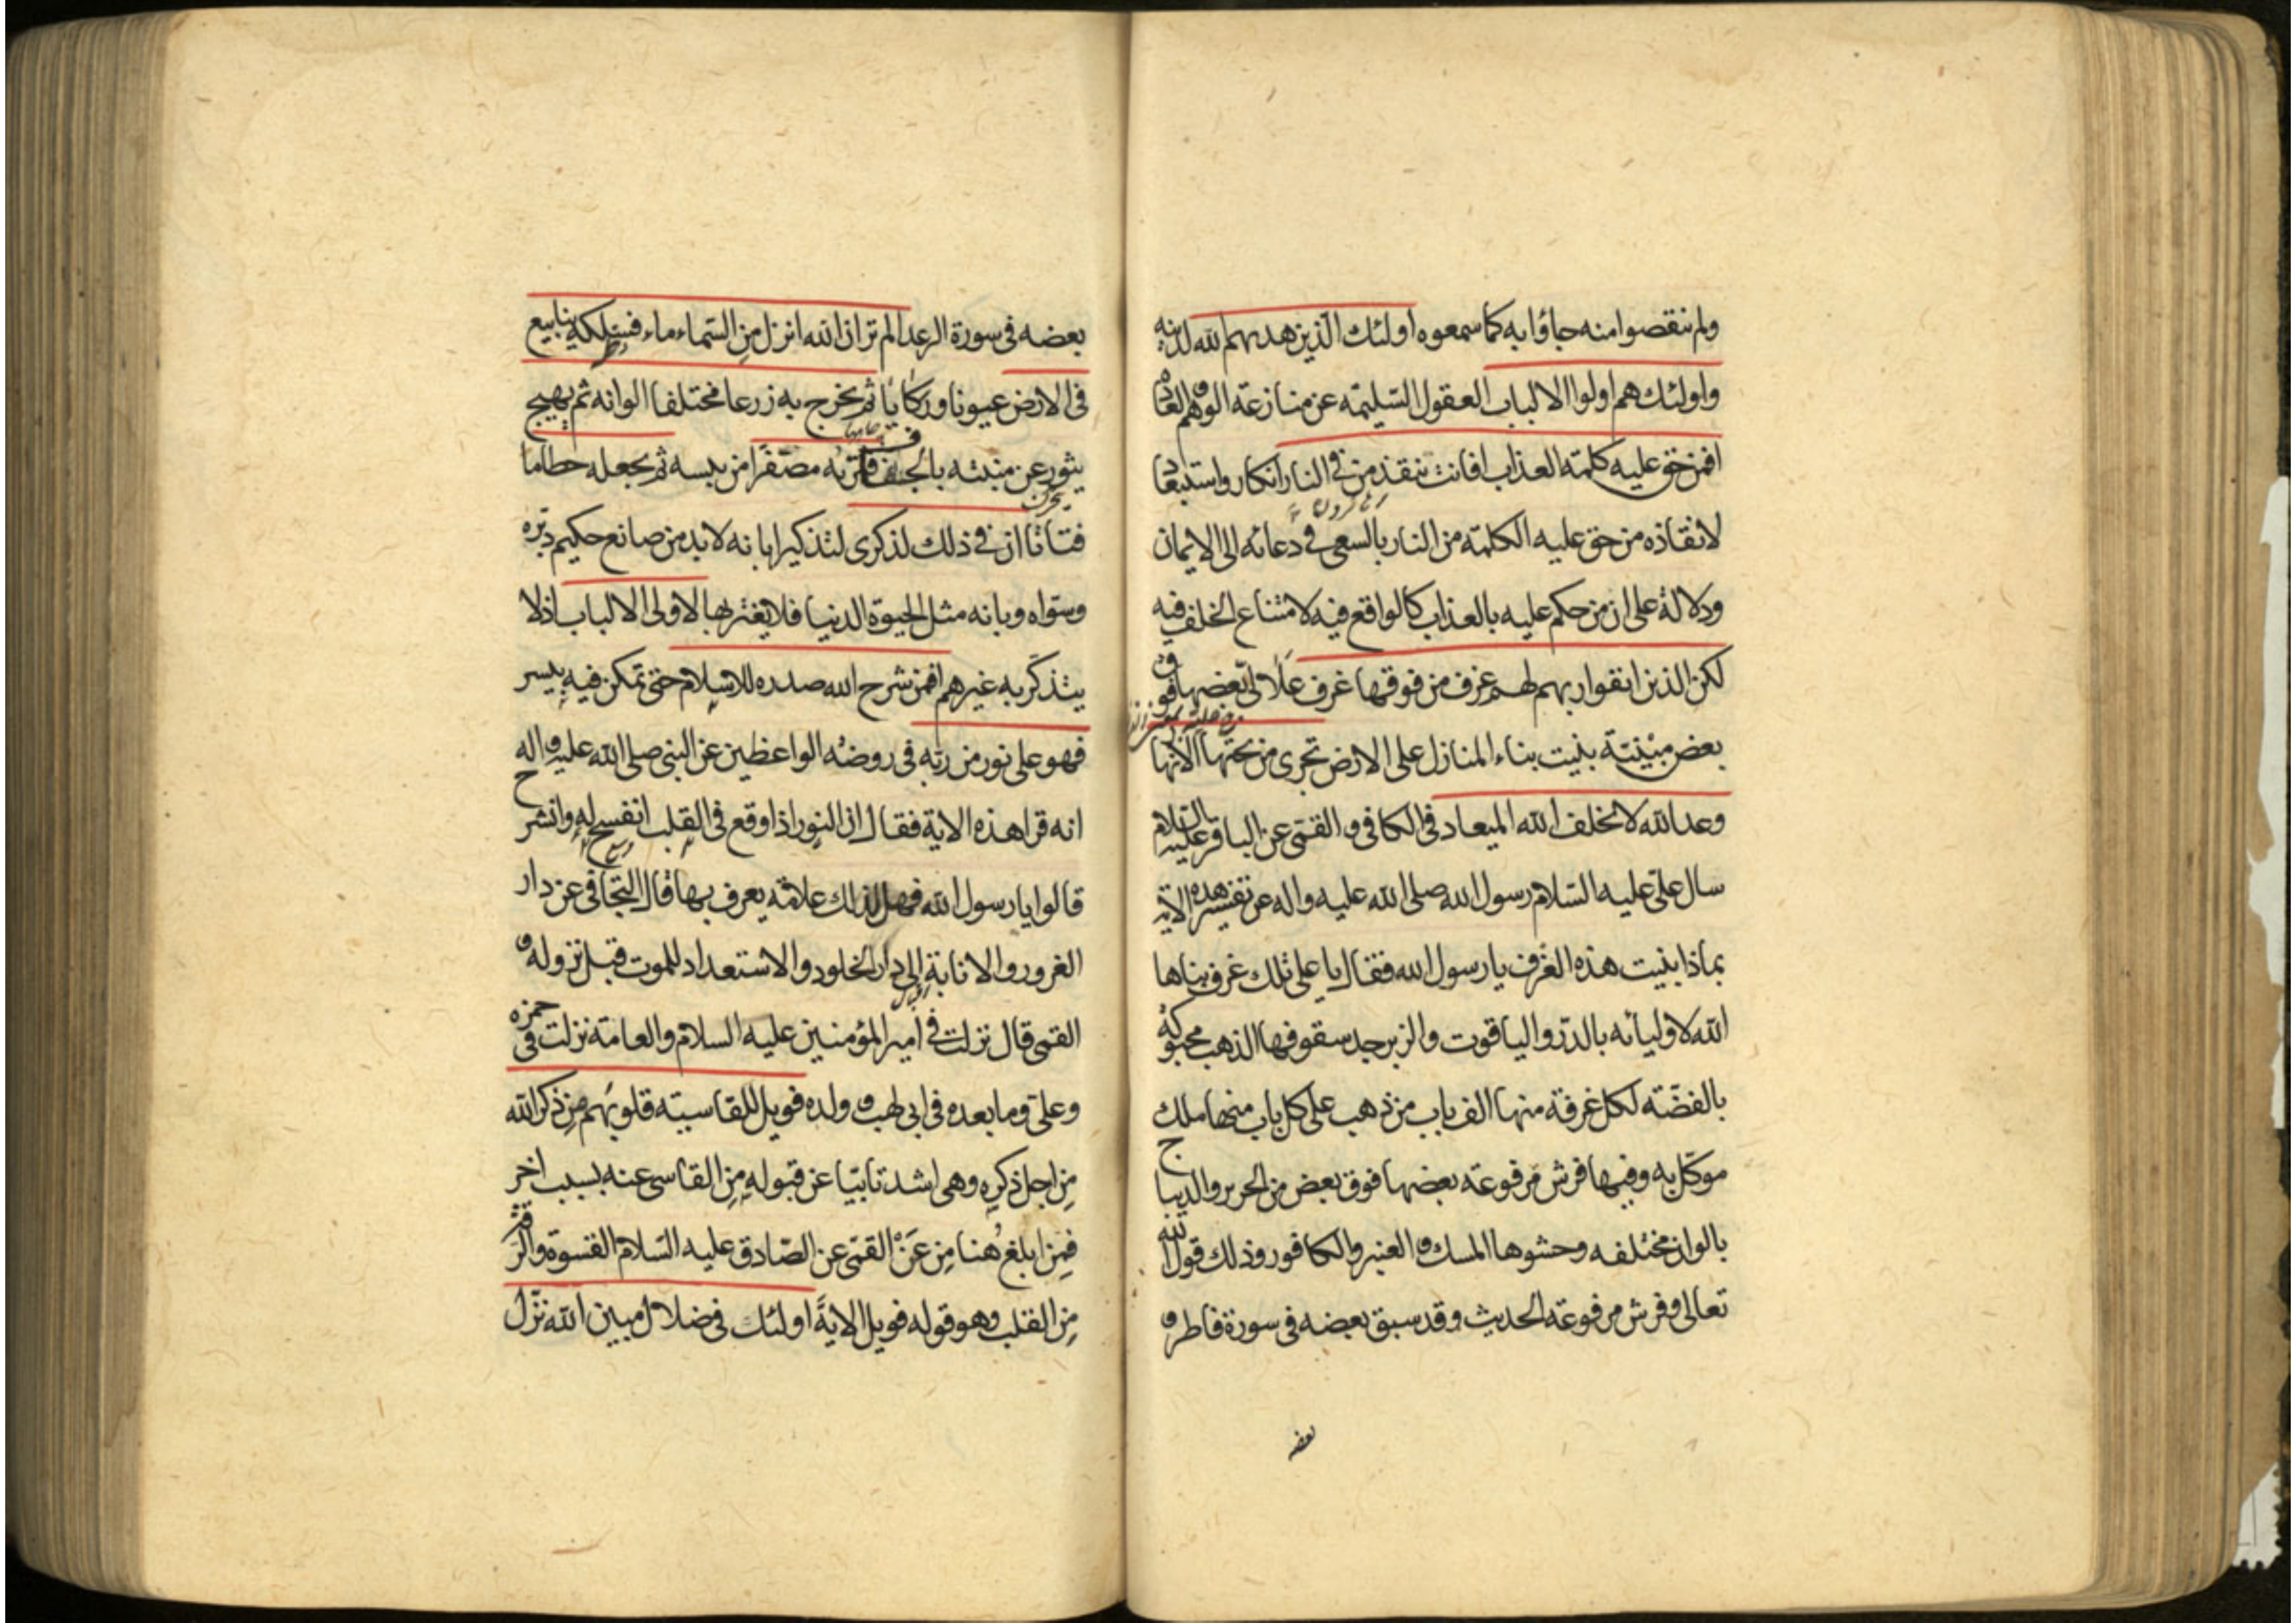 ولم ينقصوا منه جاؤا به كما سمعوه اولئك الذين هديهم الله لدينه
واولئك هم اولوا الالباب العقول السليمة عن منازعة الوهم والعادة
افمن حق عليه كلمة العذاب افانت تنقذ من في النار انكار واستبعاد
لانقاذه من حق عليه الكلمة من النار بالسعى في دعائه الى الايمان
ودلالة على ان من حكم عليه بالعذاب كالواقع فيه لامتناع الخلف فيه
لكن الذين اتقوا ربهم لهم غرف من فوقها غرف علالى بعضها فوق
بعض مبنية بنيت بناء المنازل على الارض تجرى من تحتها الانهار
وعد الله لا يخلف الله الميعاد في الكافى و القمى عن الباقر عليه السلام
سال على عليه السلام رسول الله صلى الله عليه واله عن تفسير هذه الاية
بماذا بنيت هذه الغرف يا رسول الله فقال يا على تلك غرف بناها
الله لاوليائه بالدر والياقوت والزبرجد سقوفها الذهب محبوكة
بالفضة لكل غرفة منها الف باب من ذهب على كل باب منها ملك
موكل به وفيها فرش مرفوعة بعضها فوق بعض من الحرير والديباج
بالوان مختلفه وحشوها المسك و العنبر والكافور وذلك قول الله
تعالى وفرش مرفوعة الحديث وقد سبق بعضه فى سورة فاطر و
بعضه
بعضه فى سورة الرعد الم تر ان الله انزل من السماء ماء فسلكه ينابيع
فى الارض عيونا وركايا ثم يخرج به زرعا مختلفا الوانه ثم يهيج
يثور عن منبته بالجفاف فتريه مصفرا من يبسه ثم يجعله حطاما
فتاتا ان في ذلك لذكرى لتذكيرا بانه لابد من صانع حكيم دبره
وسواه وبانه مثل الحيوة الدنيا فلا يغتر بها لاولى الالباب اذ لا
يتذكر به غيرهم افمن شرح الله صدره للاسلام حتى تمكن فيه بيسر
فهو على نور من ربه فى روضه الواعظين عن النبى صلى الله عليه و اله
انه قرا هذه الاية فقال ان النور اذا وقع فى القلب انفسح له وانشرح
قالوا يا رسول الله فهل لذلك علامة يعرف بها قال التجافى عن دار
الغرور والانابة الى دار الخلود والاستعداد للموت قبل نزوله و
القمى قال نزلت في امير المؤمنين عليه السلام والعامة نزلت فى حمزه
وعلى وما بعده فى ابى لهب و ولده فويل للقاسية قلوبهم من ذكر الله
من اجل ذكره وهى اشد تابيا عن قبوله من القاسى عنه بسبب اخر
فمن ابلغ هنا من عن القمى عن الصادق عليه السلام القسوة والرقة
من القلب وهو قوله فويل الاية اولئك فى ضلال مبين الله نزل